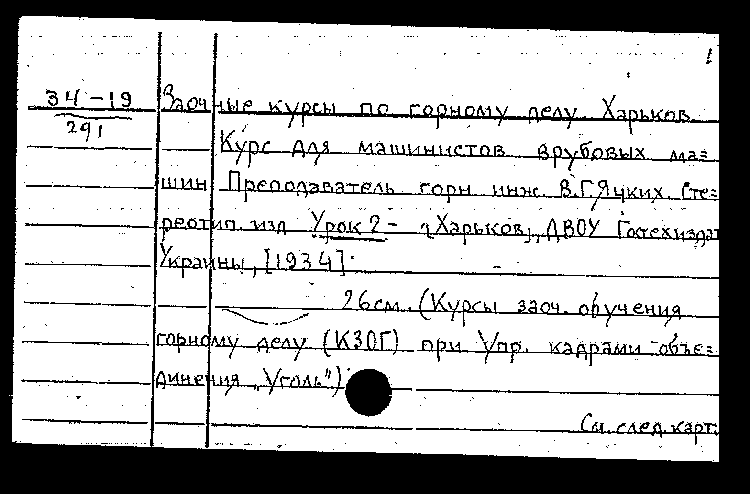 1
34-19
291
Заочные курсы по горному делу. Харьков.
Курс для машинистов врубовых ма=
шин. Преподаватель горн. инж. В.Г.Яцких. Сте=
реотип. изд. Урок 2- [Харьков], ДВОУ Гостехиздат
Украины, [1934].
26см. (Курсы заоч. обучения
горному делу (КЗОГ) при Упр. кадрами объе=
динения „Уголь")
См. след. карт.